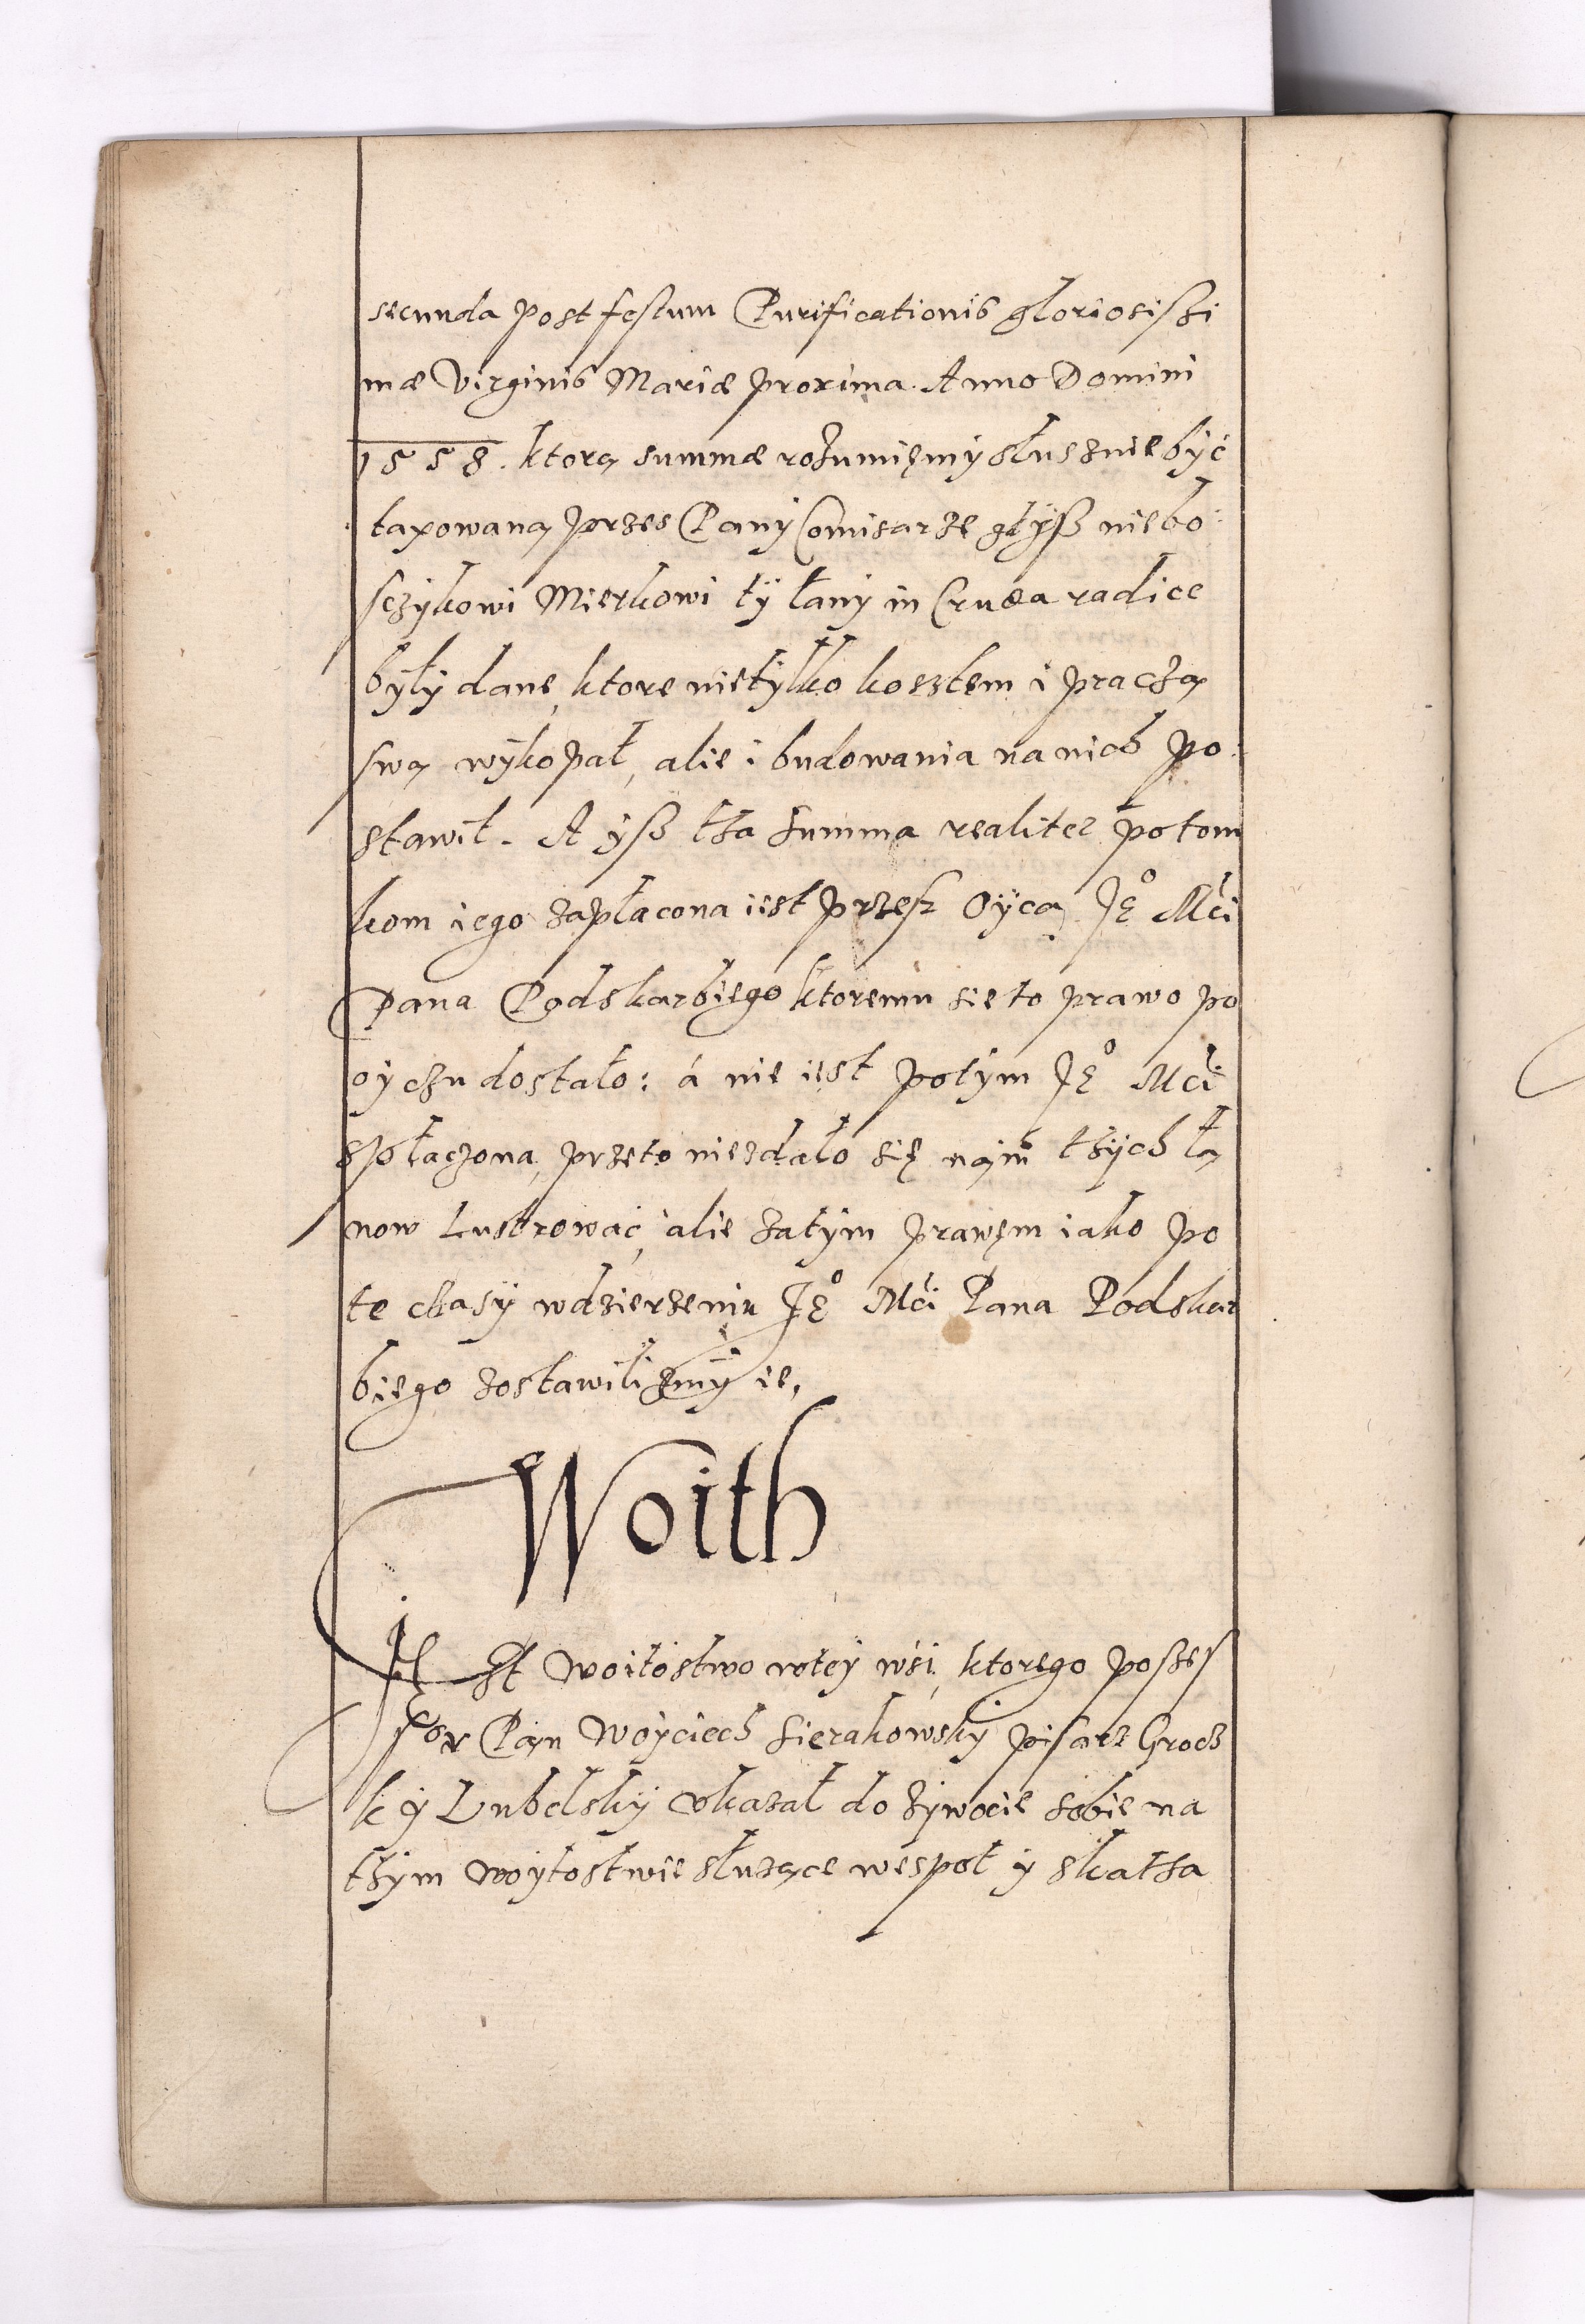 secunda post festum Purificationis gloriosissi
mæ Virginis Mariæ proxima. Anno Domini
1558. ktorą summæ rozumięmy słusznie być
taxowaną przes Pany Comisarze gdyß niebo
sczykowi Mierkowi ty łany in Cruda radice
były dane, ktore nietylko kosztem i praczą
swą wykopał, alie i budowania na nich po
stawił. A yß tha summa realiter potom
kom iego zapłacona iest przesz Oyca Jeº Mći
Pana Podskarbiego ktoremu sie to prawo po
oyczu dostało: á nie iest potym Jeº Mći
spłaczona, przeto niezdało się nąm thych ła
now Lustrować, alie zatym prawęm iako po
te chasy wdzierzeniu Jeº Mći Pana Podskar
biego zostawilizmy ie,
Woith
JEst woitostwo wtey wśi, ktorego posses
sor Pąn Woyciech Sierakowsky pisarz Grodz
ky Lubelsky vkazał do zywocie sobie na
thym woytostwie służące wespoł y skatha